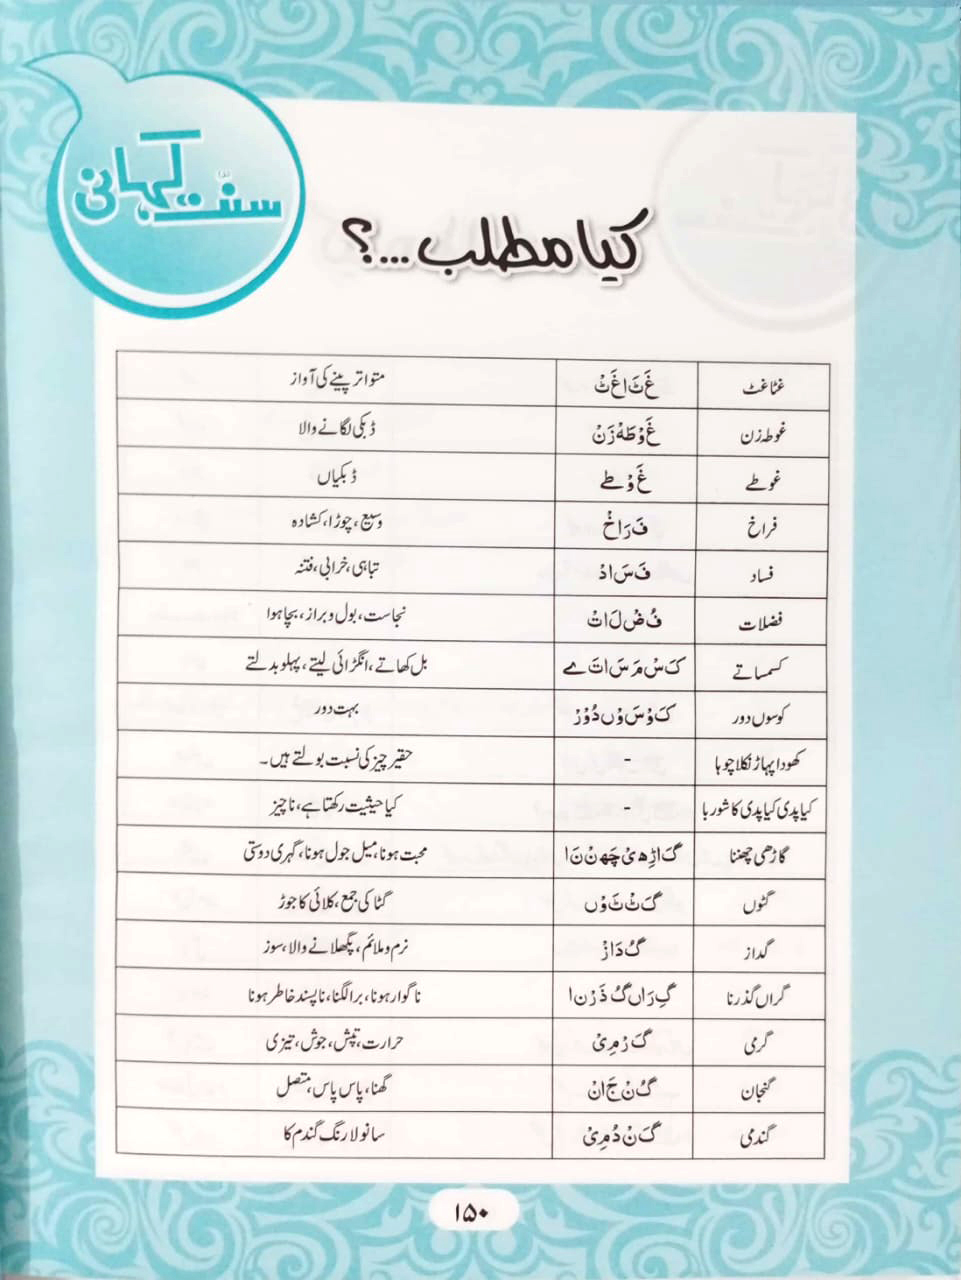 سنت کہانی
کیا مطلب ...؟
غٹاغٹ غَ ٹَ ا غَ ٹْ متواتر پینے کی آواز
غوطہ زن غَ وْ طَہْ زَ نْ ڈبکی لگانے والا
غوطے غَ وْ طے ڈبکیاں
فراخ فَ رَ ا خْ وسیع، چوڑا، کشادہ
فساد فَ سَ ا دْ تباہی، خرابی، فتنہ
فضلات فُ ضْ لَ ا تْ نجاست، بول و براز، بچا ہوا
کسمساتے کَ سْ مَ سَ ا تَ ے بل کھاتے، انگڑائی لیتے، پہلو بدلتے
کوسوں دور کَ وْ سَ وْ ں دُ وْ رْ بہت دور
کھودا پہاڑ نکلا چوہا - حقیر چیز کی نسبت بولتے ہیں۔
کیا پدی کیا پدی کا شوربا - کیا حیثیت رکھتا ہے، ناچیز
گاڑھی چھننا گَ ا ڑِھ یْ چَھ نْ نَ ا محبت ہونا، میل جول ہونا، گہری دوستی
گٹوں گَ ٹْ ٹَ وْ ں گٹا کی جمع، کلائی کا جوڑ
گداز گُ دَ ا زْ نرم و ملائم، پگھلانے والا، سوز
گراں گذرنا گِ رَ ا ں گُ ذَ رْ ن ا ناگوار ہونا، برا لگنا، ناپسند خاطر ہونا
گرمی گَ رْ مِ یْ حرارت، تپش، جوش، تیزی
گنجان گُ نْ جَ ا نْ گھنا، پاس پاس، متصل
گندمی گَ نْ دُ مِ یْ سانولا رنگ گندم کا
۱۵۰